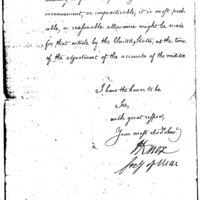 inconvenient, or impracticable, it is most prob-
able, a reasonable allowance might be made
for that article by the United States, at the time
of the adjustment of the accounts of the militia
I have the honor to be
Sir,
with great respect,
Your most obed. Servt
HKnox
Secy of War